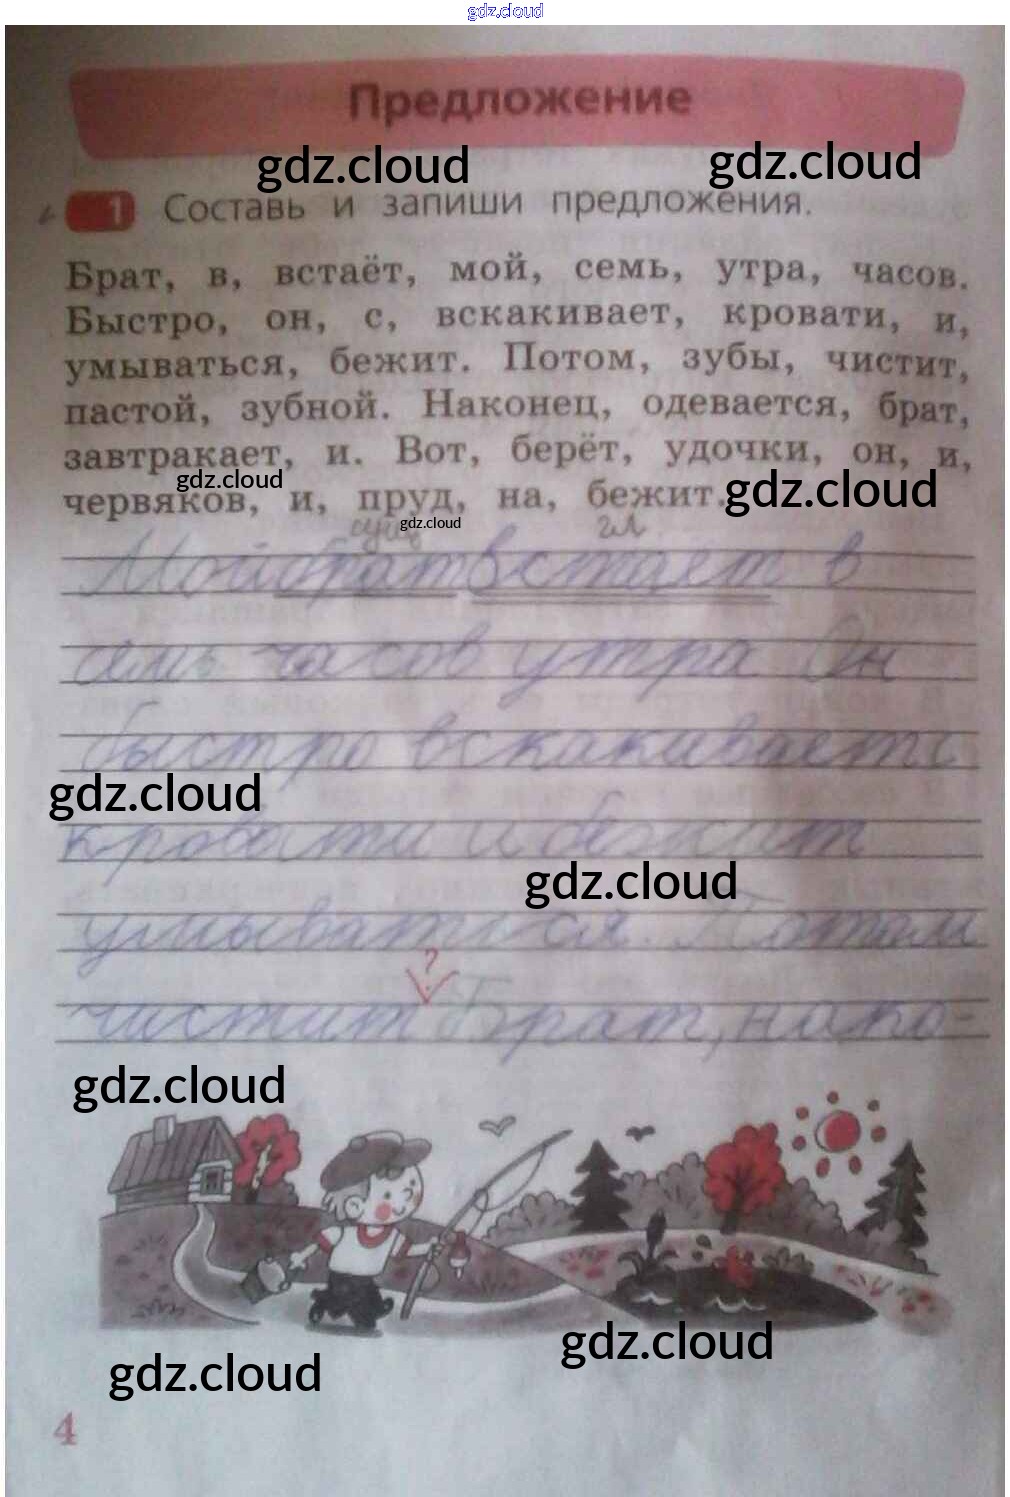 gdz.cloud
Предложение
gdz.cloud
gdz.cloud
1 Составь и запиши предложения.
Брат, в, встаёт, мой, семь, утра, часов.
Быстро, он, с, вскакивает, кровати, и,
умываться, бежит. Потом, зубы, чистит,
пастой, зубной. Наконец, одевается, брат,
завтракает, и. Вот, берёт, удочки, он, и,
gdz.cloud
gdz.cloud
червяков, и, пруд, на, бежит.
gdz.cloud
сущ гл
Мой брат встает в
семь часов утра Он
быстро вскакивает с
gdz.cloud
кровати и бежит
gdz.cloud
умываться. Потом
?
чистит Брат, нако-
gdz.cloud
gdz.cloud
gdz.cloud
4